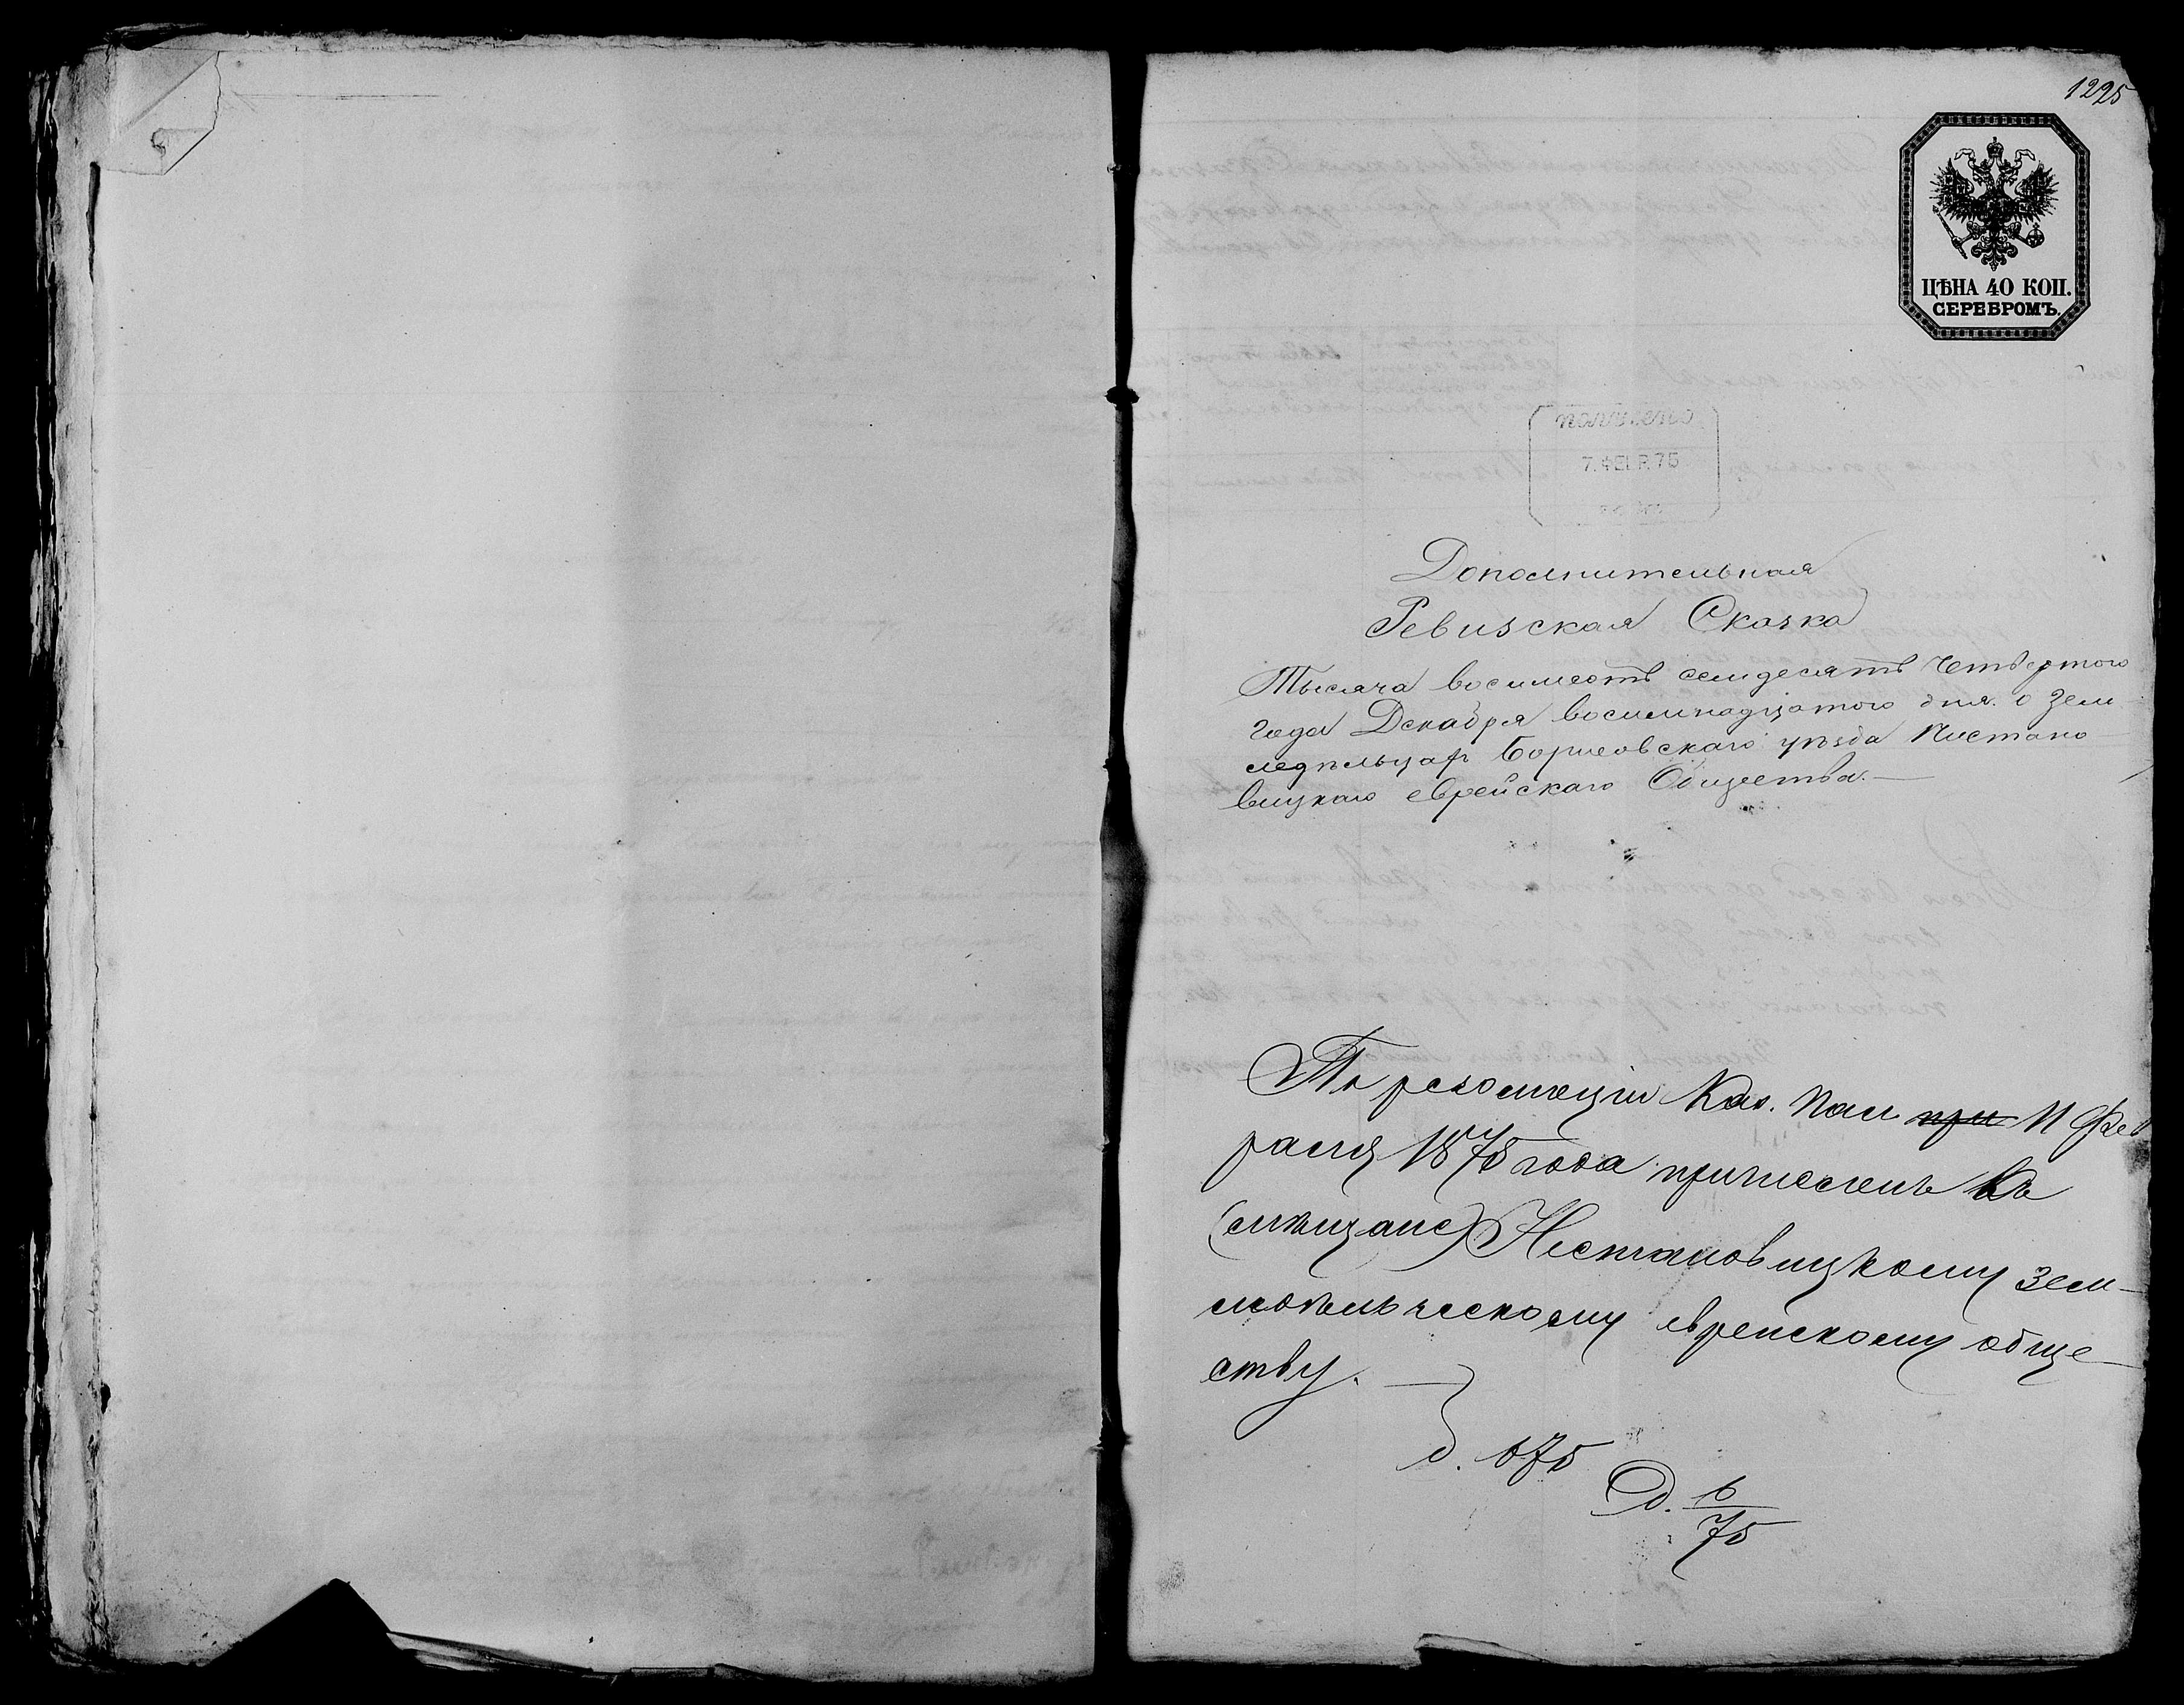 1225
ЦѢНА 40 КОП.
СЕРЕБРОМЪ.
получено
7. ФЕВР. 75
Дополнительная
Ревизская Сказка
Тысяча восимсотъ семидесятъ четвертого
года Декабря восимнадцатого дня о зем
ледѣльцах Борисовскаго уѣзда Нестано
вицкаго еврейскаго Общества.—
По резолюціи Каз. Пал при 11 Фев
раля 1875 года причислены къ
(мѣщанс) Нестановицкому зем–
ледѣльческому еврейскому обще–
ству. —
д. 675
Д. 6
75